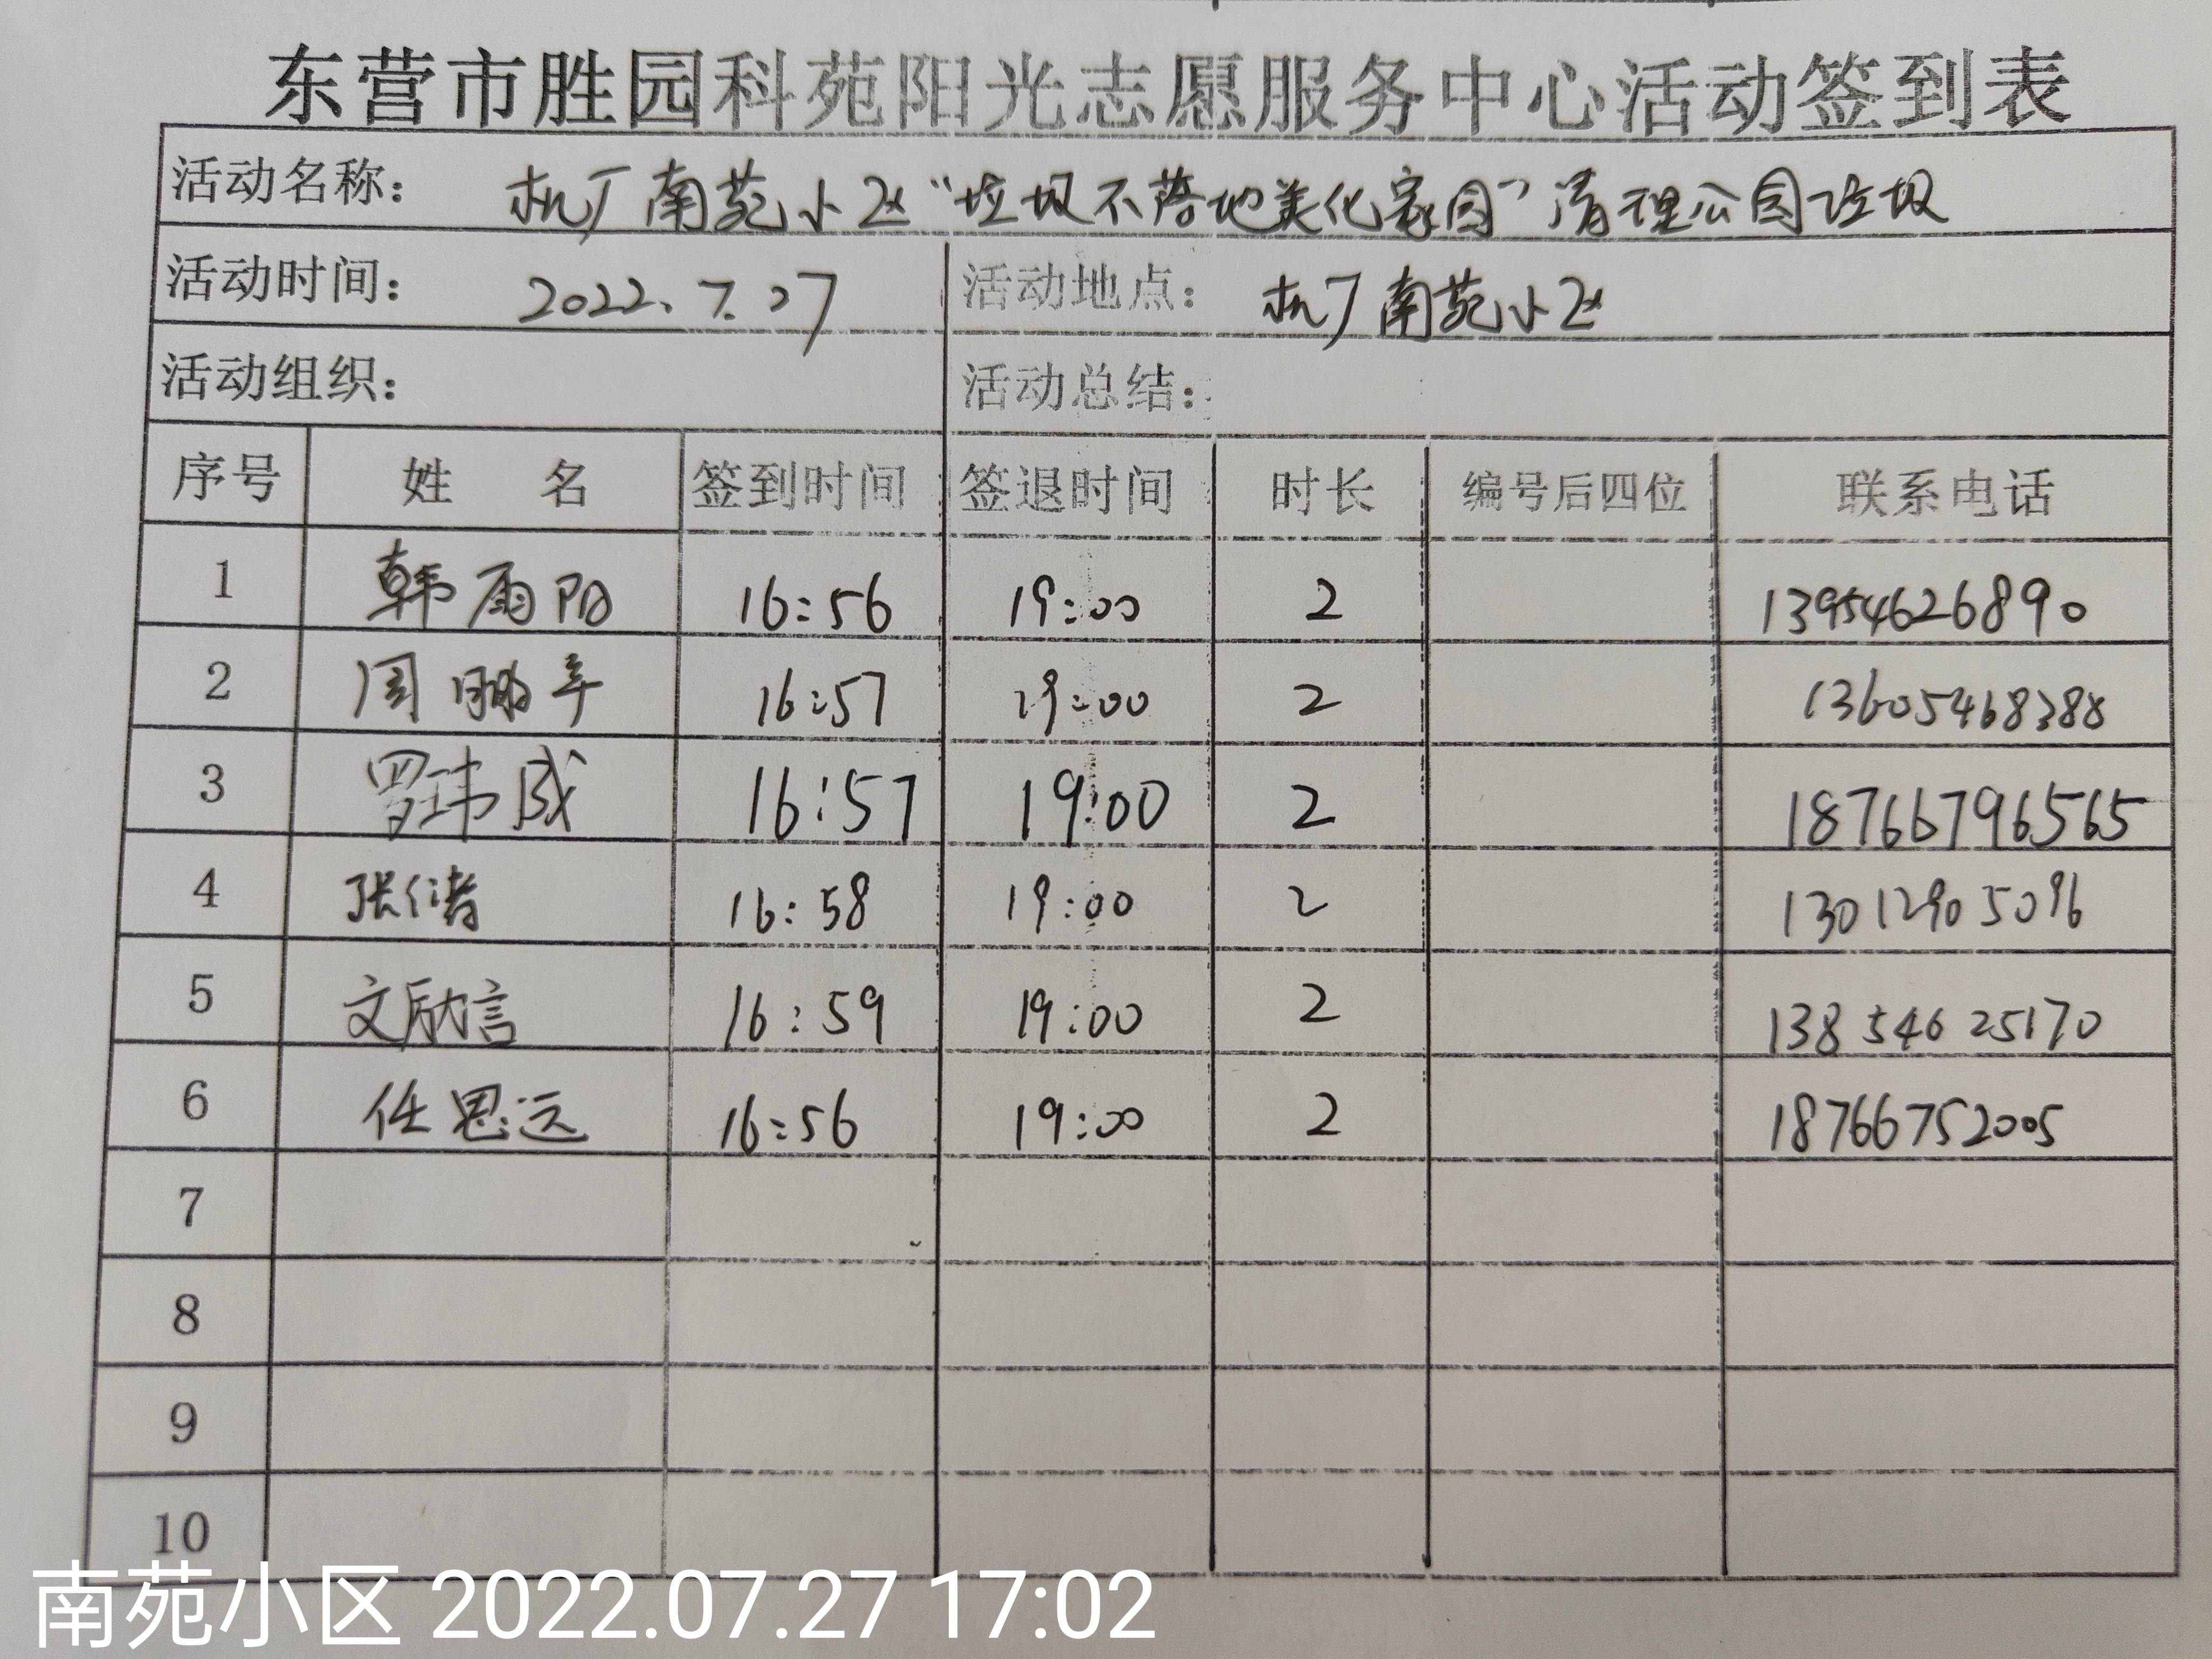 东营市胜园科苑阳光志愿服务中心活动签到表
活动名称： 机厂南苑小区“垃圾不落地美化家园”清理公园垃圾
活动时间： 2022.7.27 活动地点： 机厂南苑小区
活动组织： 活动总结：
序号 姓 名 签到时间 签退时间 时长 编号后四位 联系电话
1 韩雨阳 16:56 19:00 2 13954626890
2 周鹏宇 16:57 19:00 2 13605468388
3 罗玮成 16:57 19:00 2 18766796565
4 张 16:58 19:00 2 13012905096
5 文欣言 16:59 19:00 2 13854625170
6 任思远 16:56 19:00 2 18766752005
7
8
9
10
南苑小区 2022.07.27 17:02